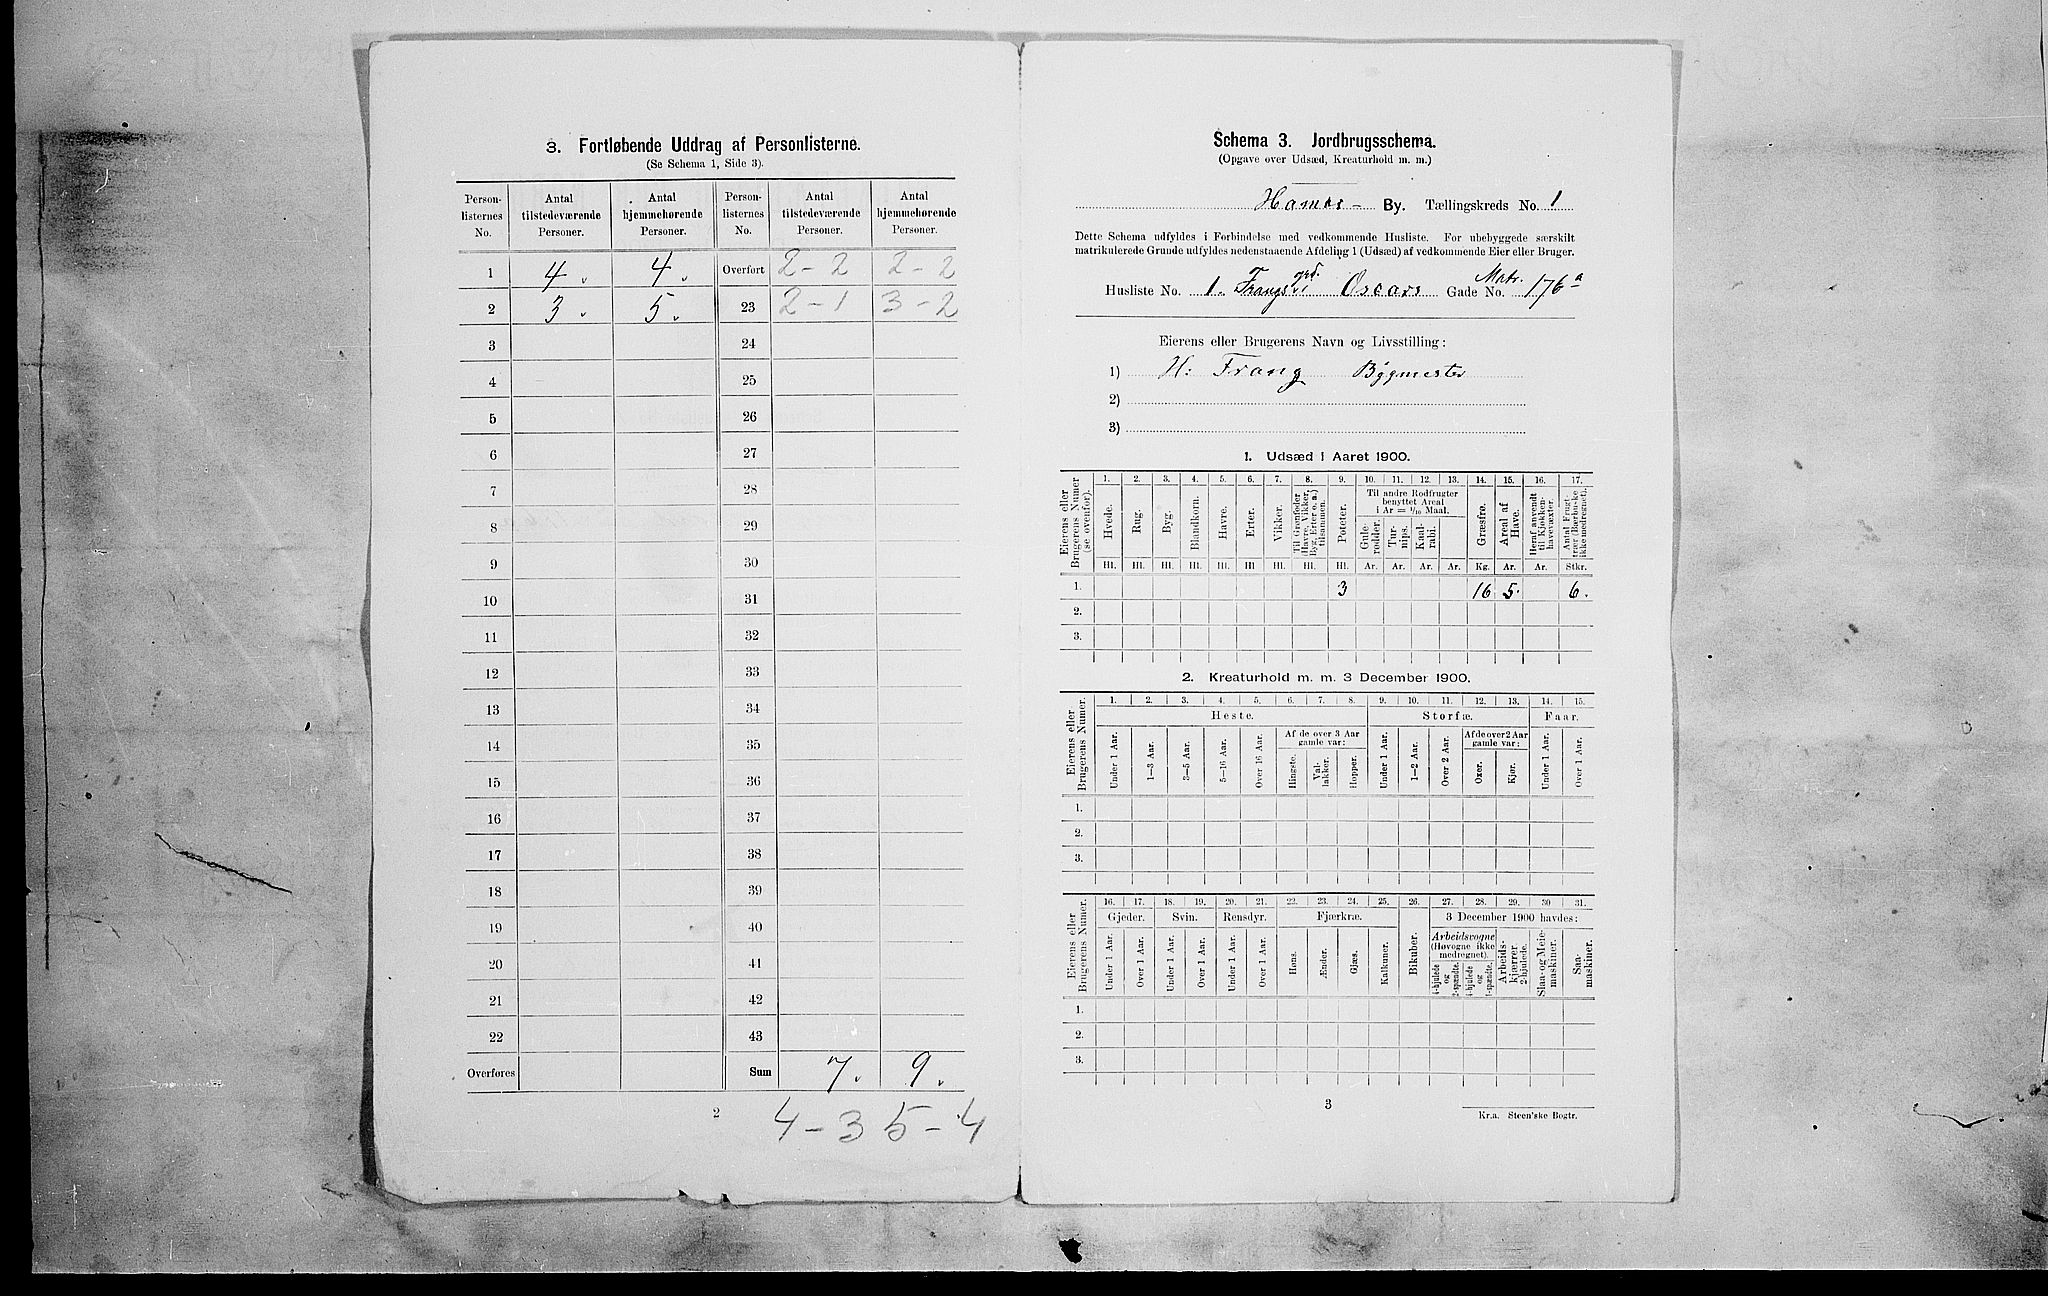 3. Fortløbende Uddrag af Personlisterne.
(Se Schema 1, Side 3).
Person-listernes No. | Antal tilstedeværende Personer. | Antal hjemmehørende Personer. | Person-listernes No. | Antal tilstedeværende Personer. | Antal hjemmehørende Personer.
1 | 4. | 4. | Overført | 2-2 | 2-2
2 | 3. | 5. | 23 | 2-1 | 3-2
3 | 24
4 | 25
5 | 26
6 | 27
7 | 28
8 | 29
9 | 30
10 | 31
11 | 32
12 | 33
13 | 34
14 | 35
15 | 36
16 | 37
17 | 38
18 | 39
19 | 40
20 | 41
21 | 42
22 | 43
Overføres | Sum | 7. | 9.
2
4-3 5-4
Schema 3. Jordbrugsschema.
(Opgave over Udsæd, Kreaturhold m. m.)
Hamar By. Tællingskreds No. 1
Dette Schema udfyldes i Forbindelse med vedkommende Husliste. For ubebyggede særskilt
matrikulerede Grunde udfyldes nedenstaaende Afdeling 1 (Udsæd) af vedkommende Eier eller Bruger.
Husliste No. 1. Frangsgrd. i Oscars Gade No. Matr. 176a
Eierens eller Brugerens Navn og Livsstilling:
1) H: Frang Bygmester
2)
3)
1. Udsæd i Aaret 1900.
Eierens eller Brugerens Numer (se ovenfor).
1. 2. 3. 4. 5. 6. 7. 8. 9. 10. 11. 12. 13. 14. 15. 16. 17.
Hvede. | Rug. | Byg. | Blandkorn. | Havre. | Erter. | Vikker. | Til Grønfoder (Havre, Vikker, Byg, Erter o. a.) tilsammen. | Poteter. | Til andre Rodfrugter benyttet Areal i Ar = 1/10 Maal. | Gule-rødder. | Tur-nips. | Kaal-rabi. | Græsfrø. | Areal af Have. | Heraf anvendt til Kjøkken-havevæxter. | Antal Frugt-trær (Bærbuske ikke medregnet).
Hl. Hl. Hl. Hl. Hl. Hl Hl. Hl. Hl. Ar. Ar. Ar. Ar. Kg. Ar. Ar. Stkr.
1. | 3 | 16 | 5. | 6.
2.
3.
2. Kreaturhold m. m. 3 December 1900.
Eierens eller Brugerens Numer.
1. 2. 3. 4. 5. 6. 7. 8. 9. 10. 11. 12. 13. 14. 15.
Heste. | Storfæ. | Faar.
Af de over 3 Aar gamle var: | Af de over 2 Aar gamle var:
Under 1 Aar. | 1—3 Aar. | 3—5 Aar. | 5—16 Aar. | Over 16 Aar. | Hingste. | Val-lakker. | Hopper. | Under 1 Aar. | 1—2 Aar. | Over 2 Aar. | Oxer. | Kjør. | Under 1 Aar. | Over 1 Aar.
1.
2.
3.
Eierens eller Brugerens Numer.
16. 17. 18. 19. 20. 21. 22. 23. 24. 25. 26. 27. 28. 29. 30 31.
Gjeder. | Svin. | Rensdyr. | Fjærkræ. | Bikuber. | 3 December 1900 havdes:
Arbeidsvogne (Høvogne ikke medregnet).
Under 1 Aar. | Over 1 Aar. | Under 1 Aar. | Over 1 Aar. | Under 1 Aar. | Over 1 Aar. | Høns. | Ænder. | Gjæs. | Kalkuner. | 4-hjulede og 2-spændte. | 4-hjulede og 1-spændte. | Arbeids-kjærrer 2-hjulede. | Slaa- og Meie-maskiner. | Saa-maskiner.
1.
2.
3.
3
Kr.a. Steen'ske Bogtr.